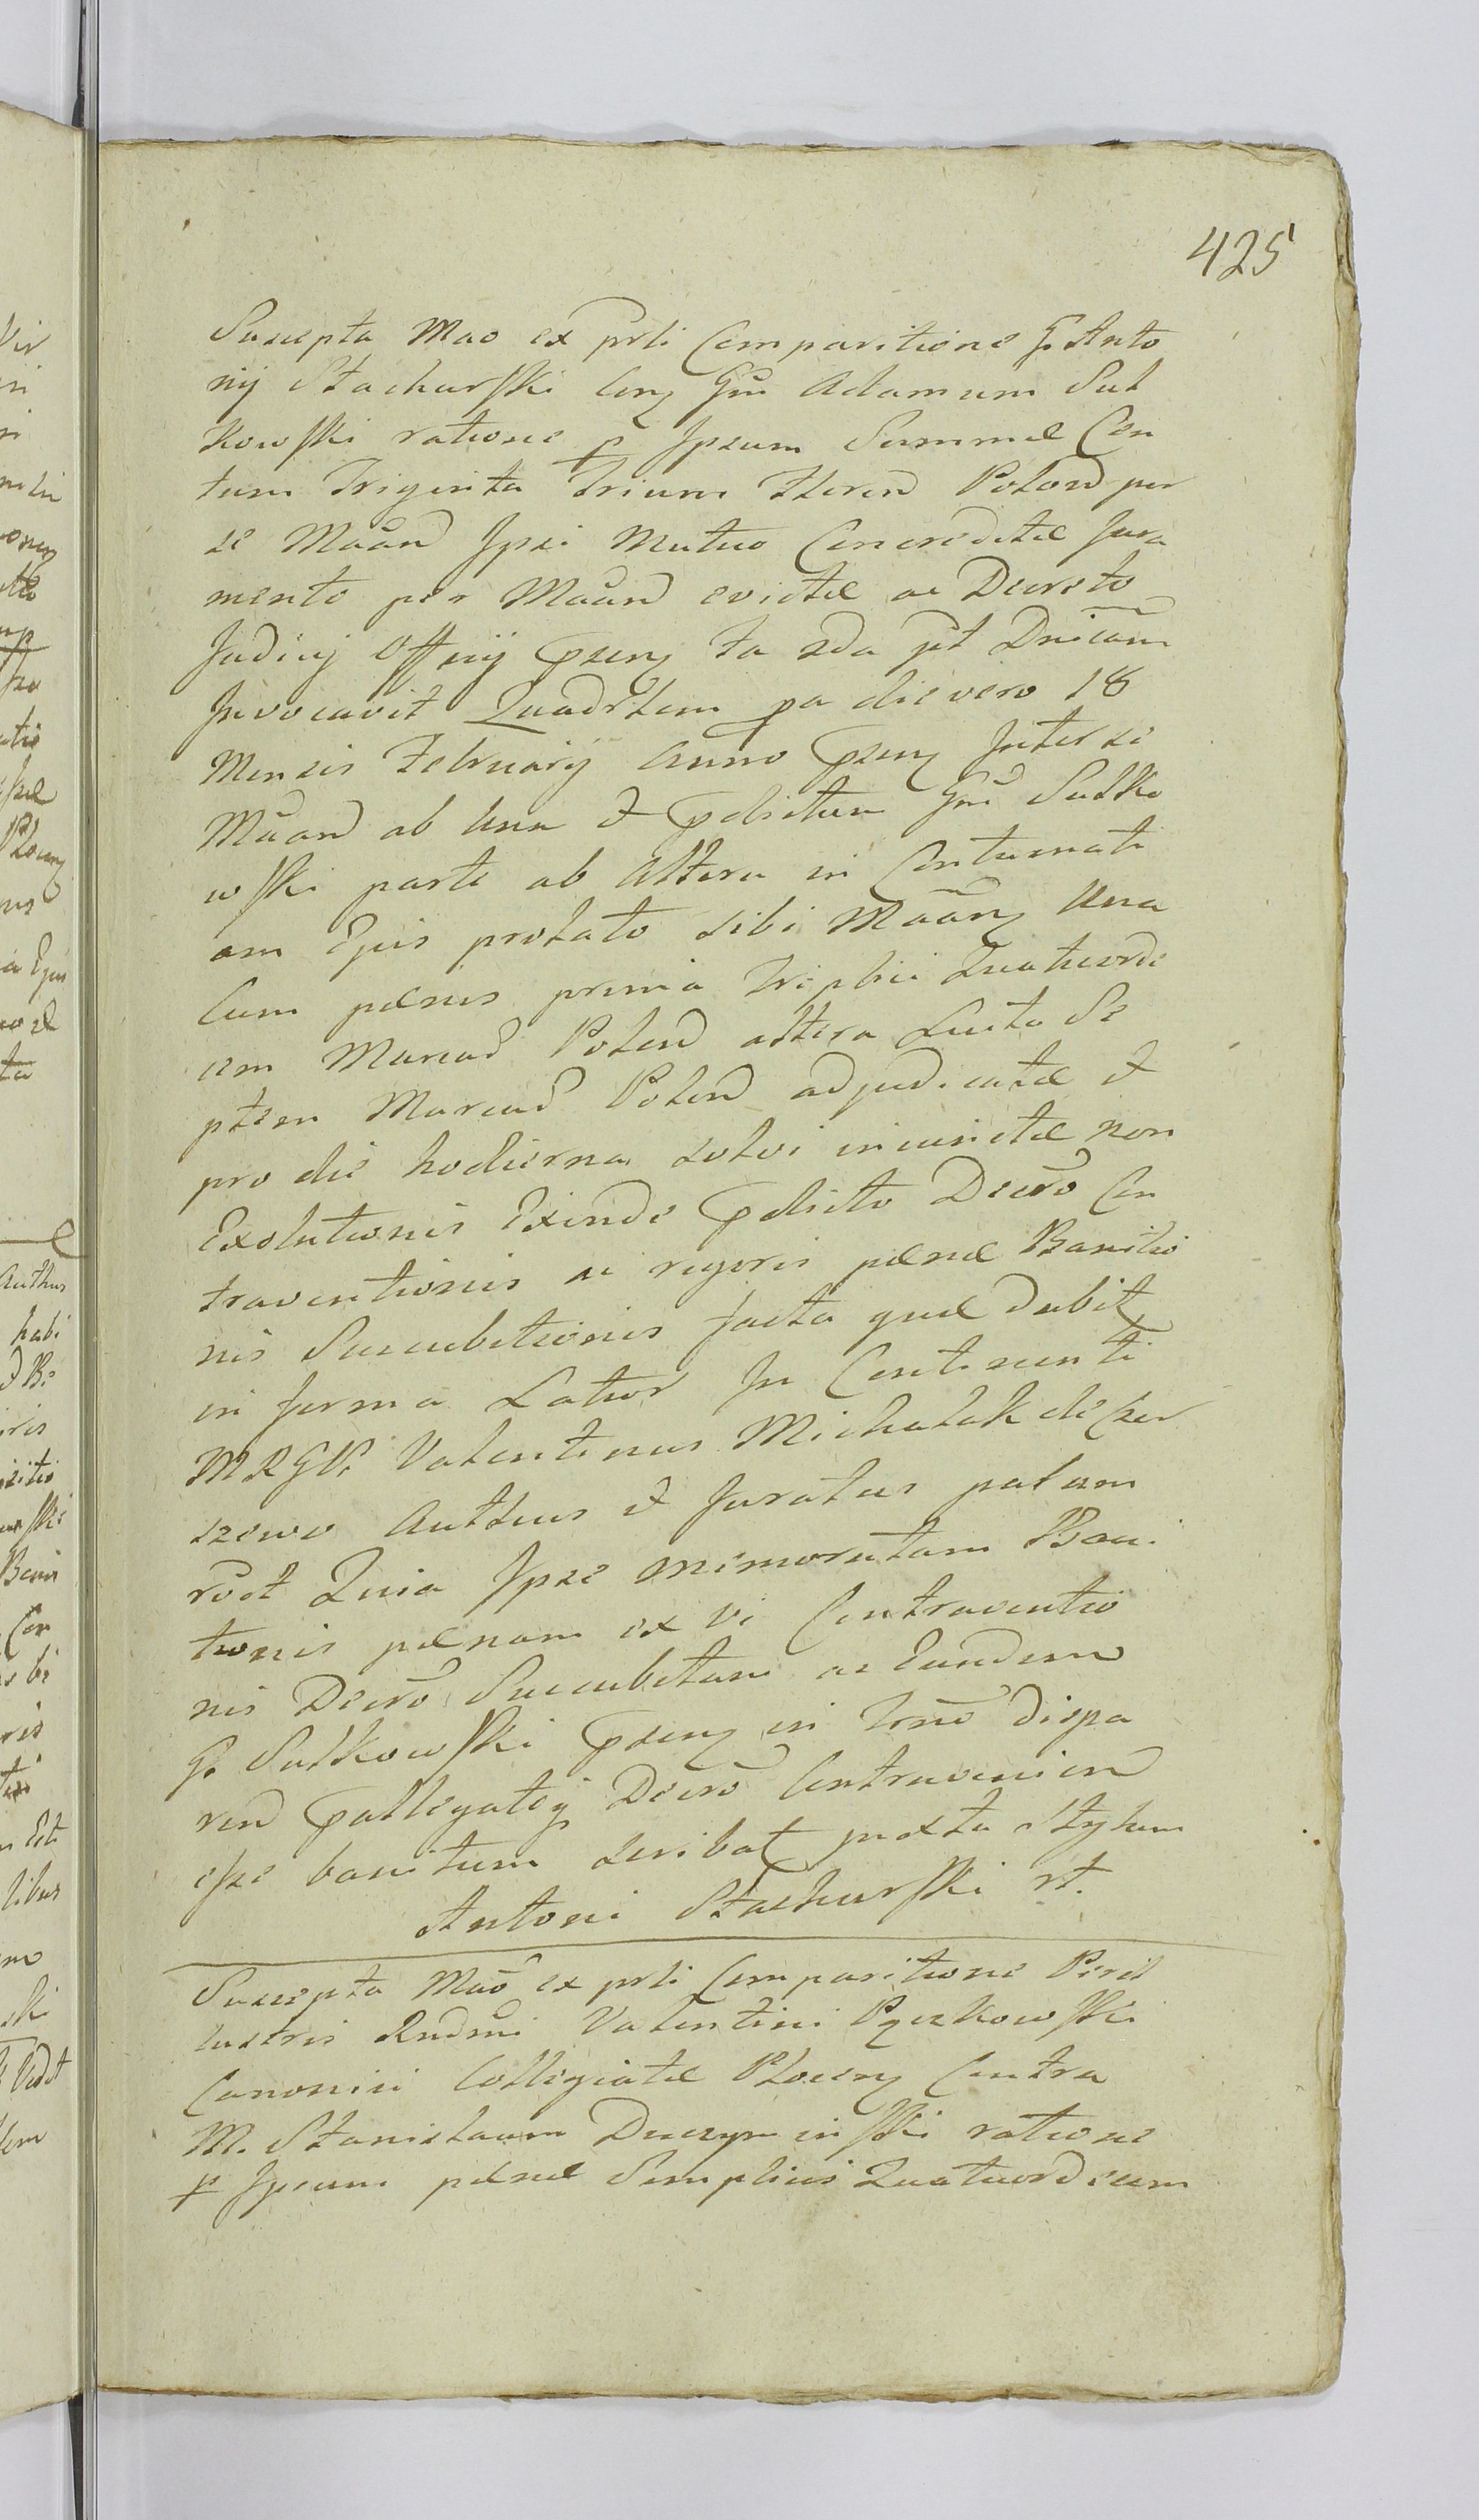 425
Suscepta Mao ex prti Comparitione G. Anto
nij Stachurski Cong Gm Adamum Sul
kowski ratione p Ipsum Summæ Cen
tum Triginta Trium Floren Polon per
se Maan Ipsi Mutuo Concreditæ Jura
mento per Maan evictæ ac Decreto
Judicij Officij
Invocavit Quadrlem pa die vero 18
Mensis Februarij Anno psens Inter se
Maan ab Una & pdictum Gm Sulko
wski parte ab Altera in Contumati
am Ejus prolato sibi Maang Una
Cum pænis prima Triplici Quatuorde
cem Marcar Polon altera Luita Se
ptem Marcar Polon adjudicatæ &
pro die hodierna solvi injunctæ non
Exolutionis Exinde pdicto Decro Con
traventionis ac rigoris pænæ Banitio
nis Succubitionis facta quæ dabit
in forma Latior In Continenti
MRGVF Valentinus Michalak de Czer
szewo Authus & Juratus palam
rcdt Quia Ipse memoratam Bani
tionis pænam ex vi Contraventio
nis Decro Succubitam ac Eundem
G. Sulkowski psens in Trno dispa
ren pallegatoj Decro Contravenien
esse banitum scribat juxta Stylum
Antoni Stachurski rt.
Suscepta Mao ex prti Comparitione Peril
lustris Rndmi Valentini Pęczkowski
Canonici Collegiatæ Plocens Contra
M. Stanislaum Duczyminski ratione
p Ipsum pænæ Simplicis Quatuordecim